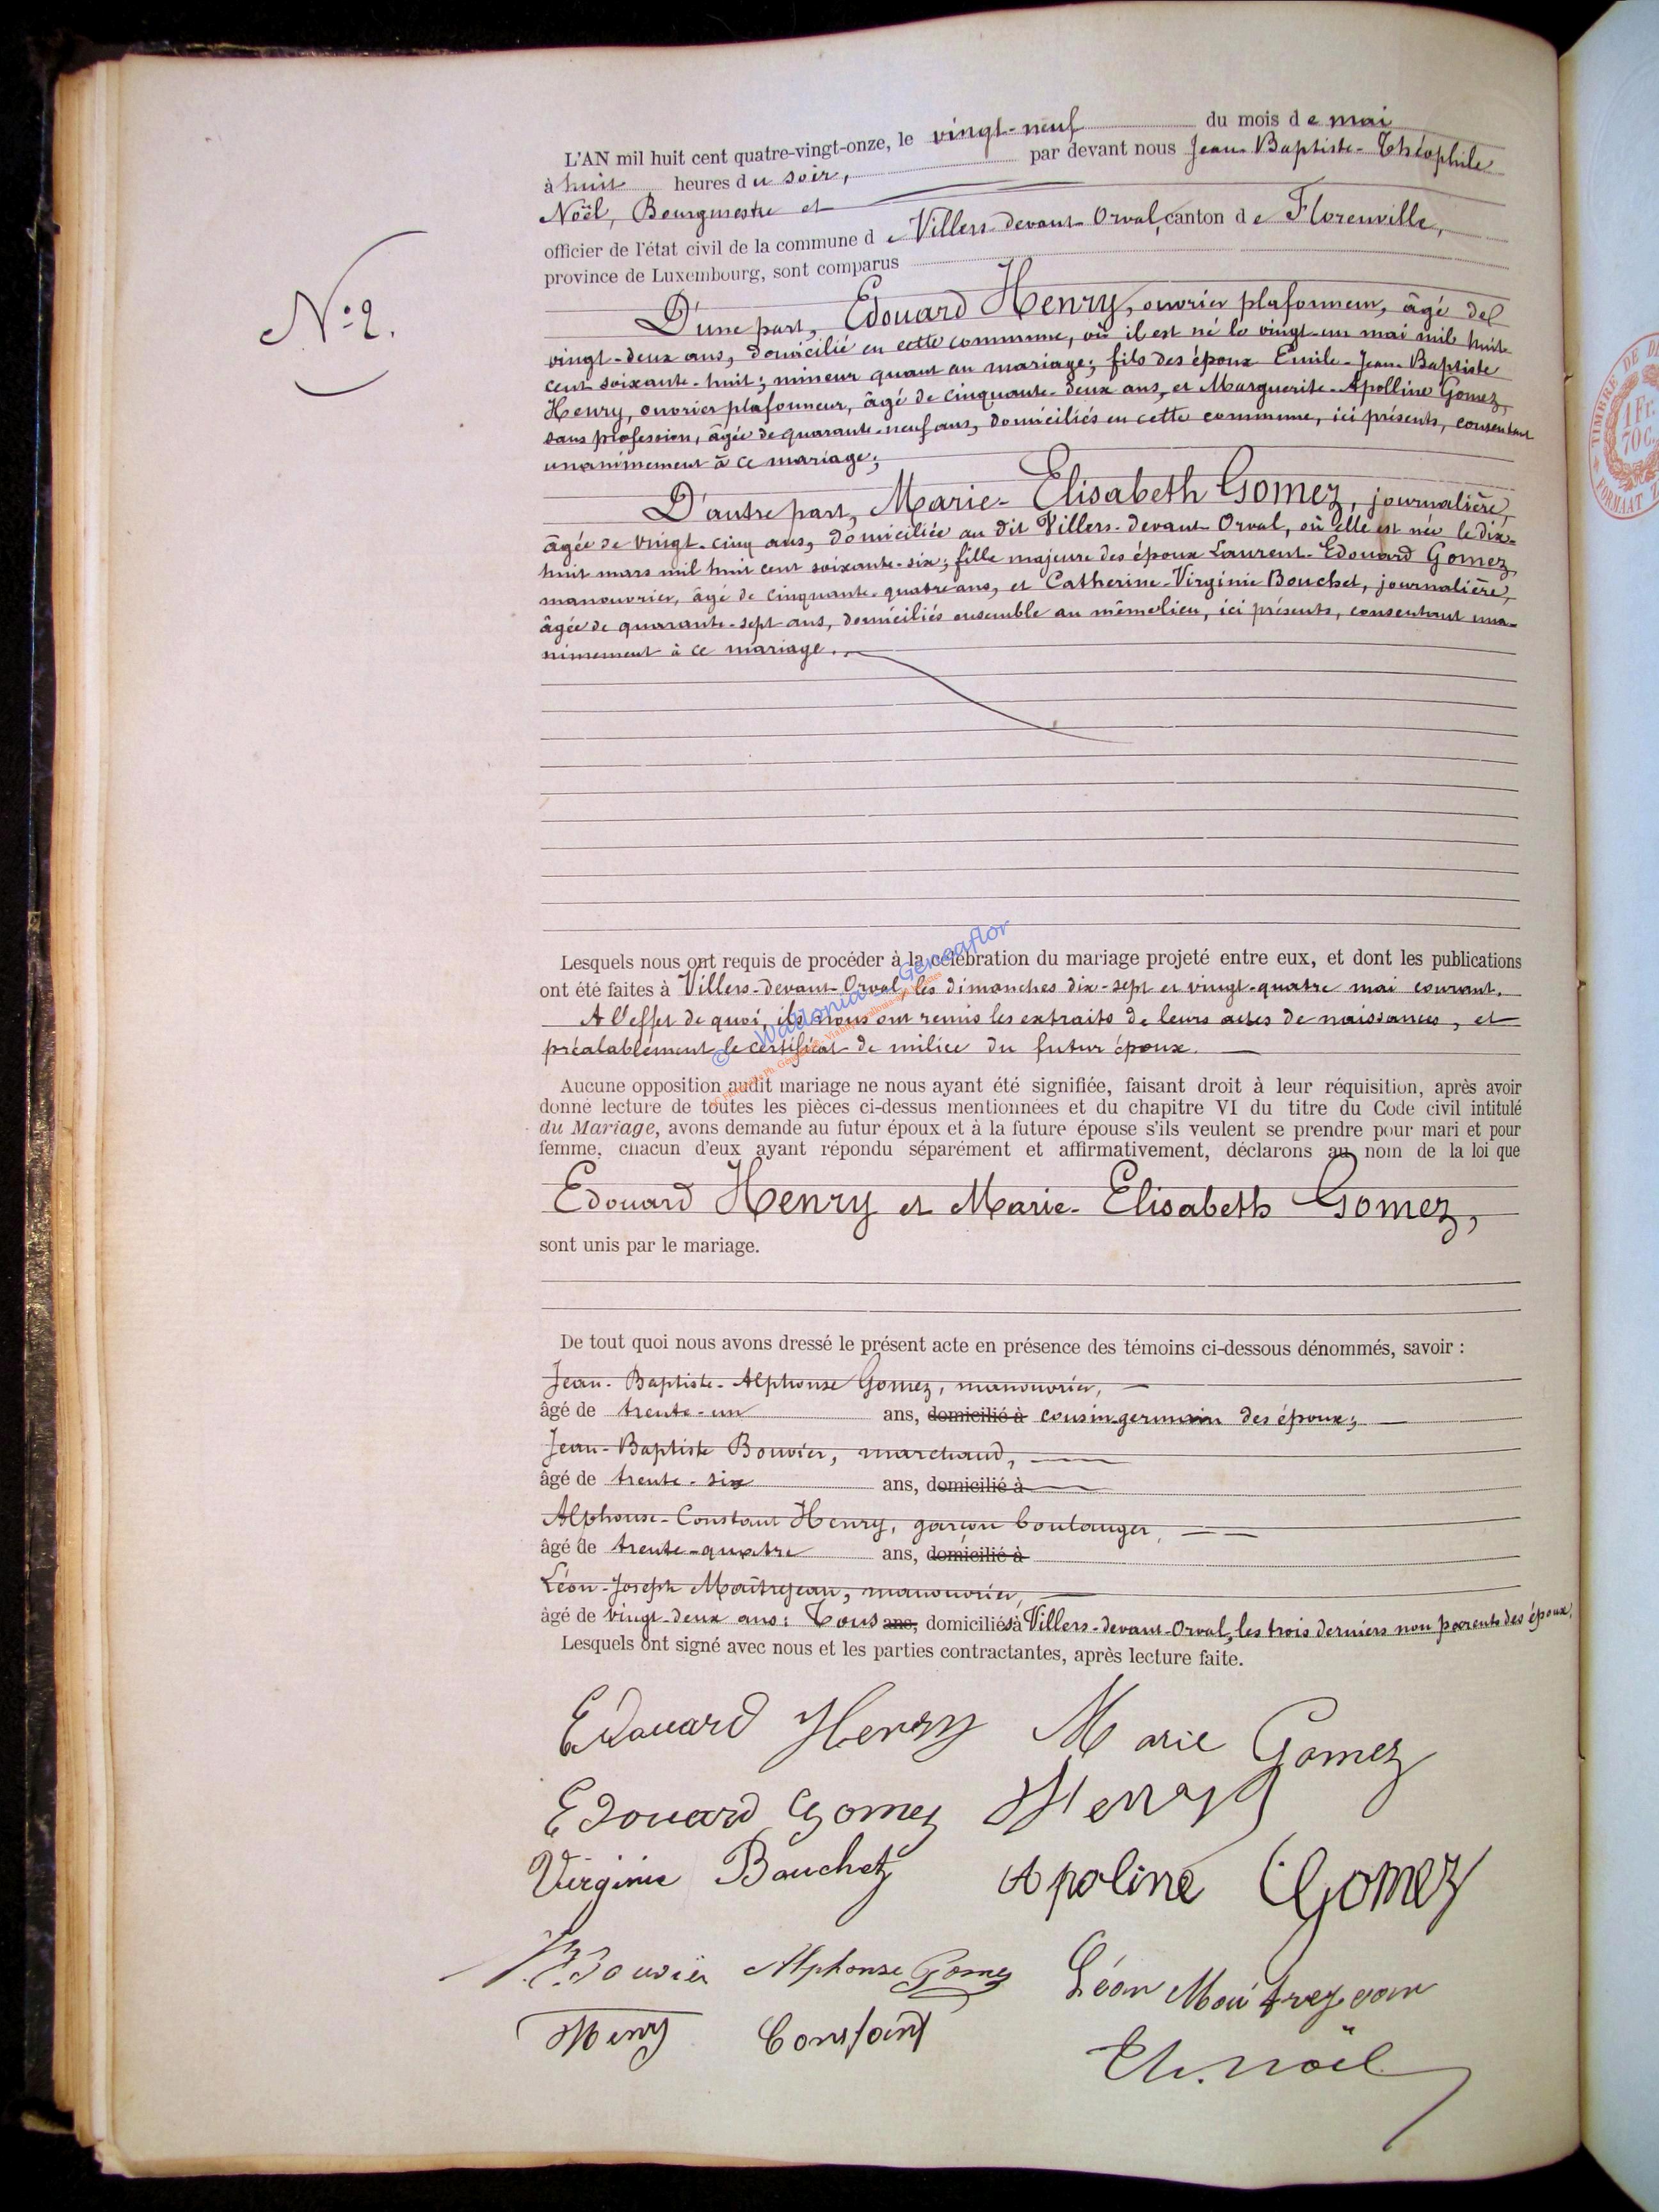 N.º 2.
L'AN mil huit cent quatre-vingt-onze, le vingt-neuf du mois de mai
à huit heures du soir, par devant nous Jean-Baptiste-Théophile
Noël, Bourgmestre et
officier de l'état civil de la commune de Villers-devant-Orval, canton de Florenville,
province de Luxembourg, sont comparus
D'une part, Edouard Henry, ouvrier plafonneur, âgé de
vingt-deux ans, domicilié en cette commune, où il est né le vingt-un mai mil huit
cent soixante-huit; mineur quant au mariage; fils des époux Emile-Jean-Baptiste
Henry, ouvrier plafonneur, âgé de cinquante-deux ans, et Marguerite-Apolline Gomez,
sans profession, âgée de quarante-neuf ans, domiciliés en cette commune, ici présents, consentant
unanimement à ce mariage;
D'autre part, Marie-Elisabeth Gomez, journalière,
âgée de vingt-cinq ans, domiciliée au dit Villers-devant-Orval, où elle est née le dix-
huit mars mil huit cent soixante-six; fille majeure des époux Laurent-Edouard Gomez,
manouvrier, âgé de cinquante-quatre ans, et Catherine-Virginie Bouchet, journalière,
âgée de quarante-sept ans, domiciliés ensemble au même lieu, ici présents, consentant una-
nimement à ce mariage.
Lesquels nous ont requis de procéder à la célébration du mariage projeté entre eux, et dont les publications
ont été faites à Villers-devant-Orval, les dimanches dix-sept et vingt-quatre mai courant.
A l'effet de quoi, ils nous ont remis les extraits de leurs actes de naissances, et
préalablement le certificat de milice du futur époux.
© Wallonia - Geneaflor
Aucune opposition audit mariage ne nous ayant été signifiée, faisant droit à leur réquisition, après avoir
donné lecture de toutes les pièces ci-dessus mentionnées et du chapitre VI du titre du Code civil intitulé
du Mariage, avons demandé au futur époux et à la future épouse s'ils veulent se prendre pour mari et pour
femme, chacun d'eux ayant répondu séparément et affirmativement, déclarons au nom de la loi que
Edouard Henry et Marie-Elisabeth Gomez,
sont unis par le mariage.
De tout quoi nous avons dressé le présent acte en présence des témoins ci-dessous dénommés, savoir :
Jean-Baptiste-Alphonse Gomez, manouvrier,
âgé de trente-un ans, domicilié à cousin germain des époux;
Jean-Baptiste Bouvier, marchand,
âgé de trente-six ans, domicilié à
Alphonse-Constant Henry, garçon boulanger,
âgé de trente-quatre ans, domicilié à
Léon-Joseph Maîtrejean, manouvrier,
âgé de vingt-deux ans: Tous ans, domiciliés à Villers-devant-Orval, les trois derniers non parents des époux.
Lesquels ont signé avec nous et les parties contractantes, après lecture faite.
Edouard Henry Marie Gomez
Edouard Gomez Henry
Virginie Bouchet Apoline Gomez
Bouvier Alphonse Gomez Léon Maitrejean
Henry Constant
Th. Noël
TIMBRE DE
1 Fr.
70 C.
FORMAAT